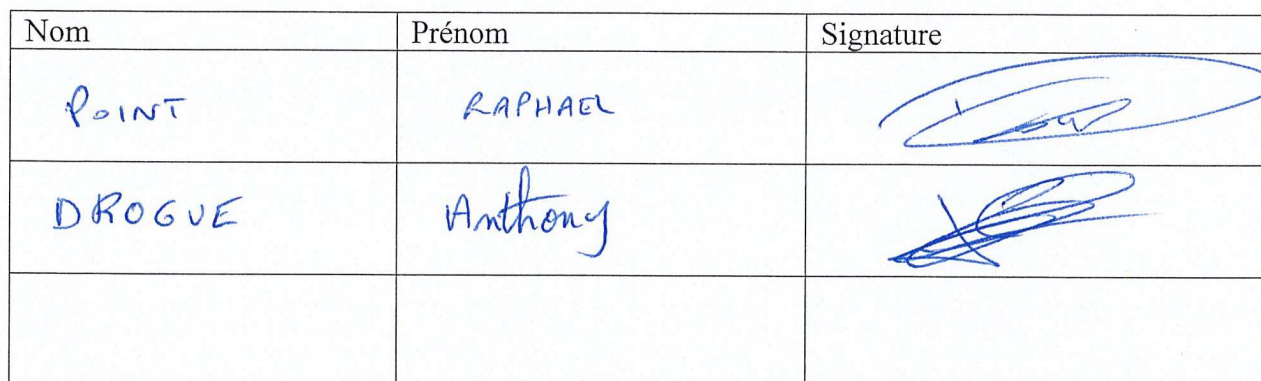 Nom Prénom Signature
POINT RAPHAEL
DROGUE Anthony